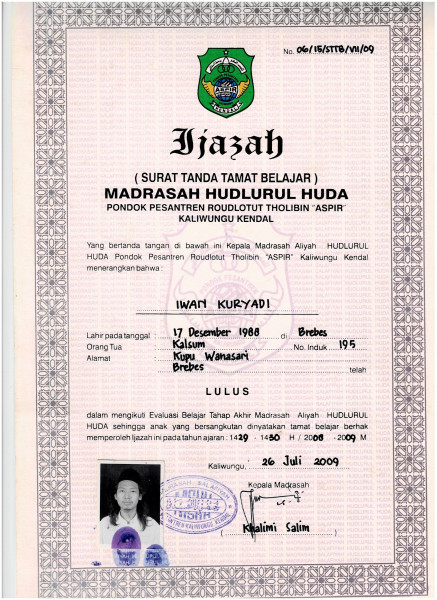 No. 06/15/STTB/VII/09
ASPIR
KENDAL
Ijazah
( SURAT TANDA TAMAT BELAJAR )
MADRASAH HUDLURUL HUDA
PONDOK PESANTREN ROUDLOTUT THOLIBIN "ASPIR"
KALIWUNGU KENDAL
Yang bertanda tangan di bawah ini Kepala Madrasah Aliyah HUDLURUL
HUDA Pondok Pesantren Roudlotut Tholibin "ASPIR" Kaliwungu Kendal
menerangkan bahwa :
IWAN KURYADI
Lahir pada tanggal : 17 Desember 1988 di Brebes
Orang Tua : Kalsum No. Induk : 195
Alamat : Kupu Wanasari
Brebes telah
LULUS
dalam mengikuti Evaluasi Belajar Tahap Akhir Madrasah Aliyah HUDLURUL
HUDA sehingga anak yang bersangkutan dinyatakan tamat belajar berhak
memperoleh Ijazah ini pada tahun ajaran : 1429 - 1430 H / 2008 - 2009 M
Kaliwungu, 26 Juli 2009
Kepala Madrasah
( Khalimi Salim )